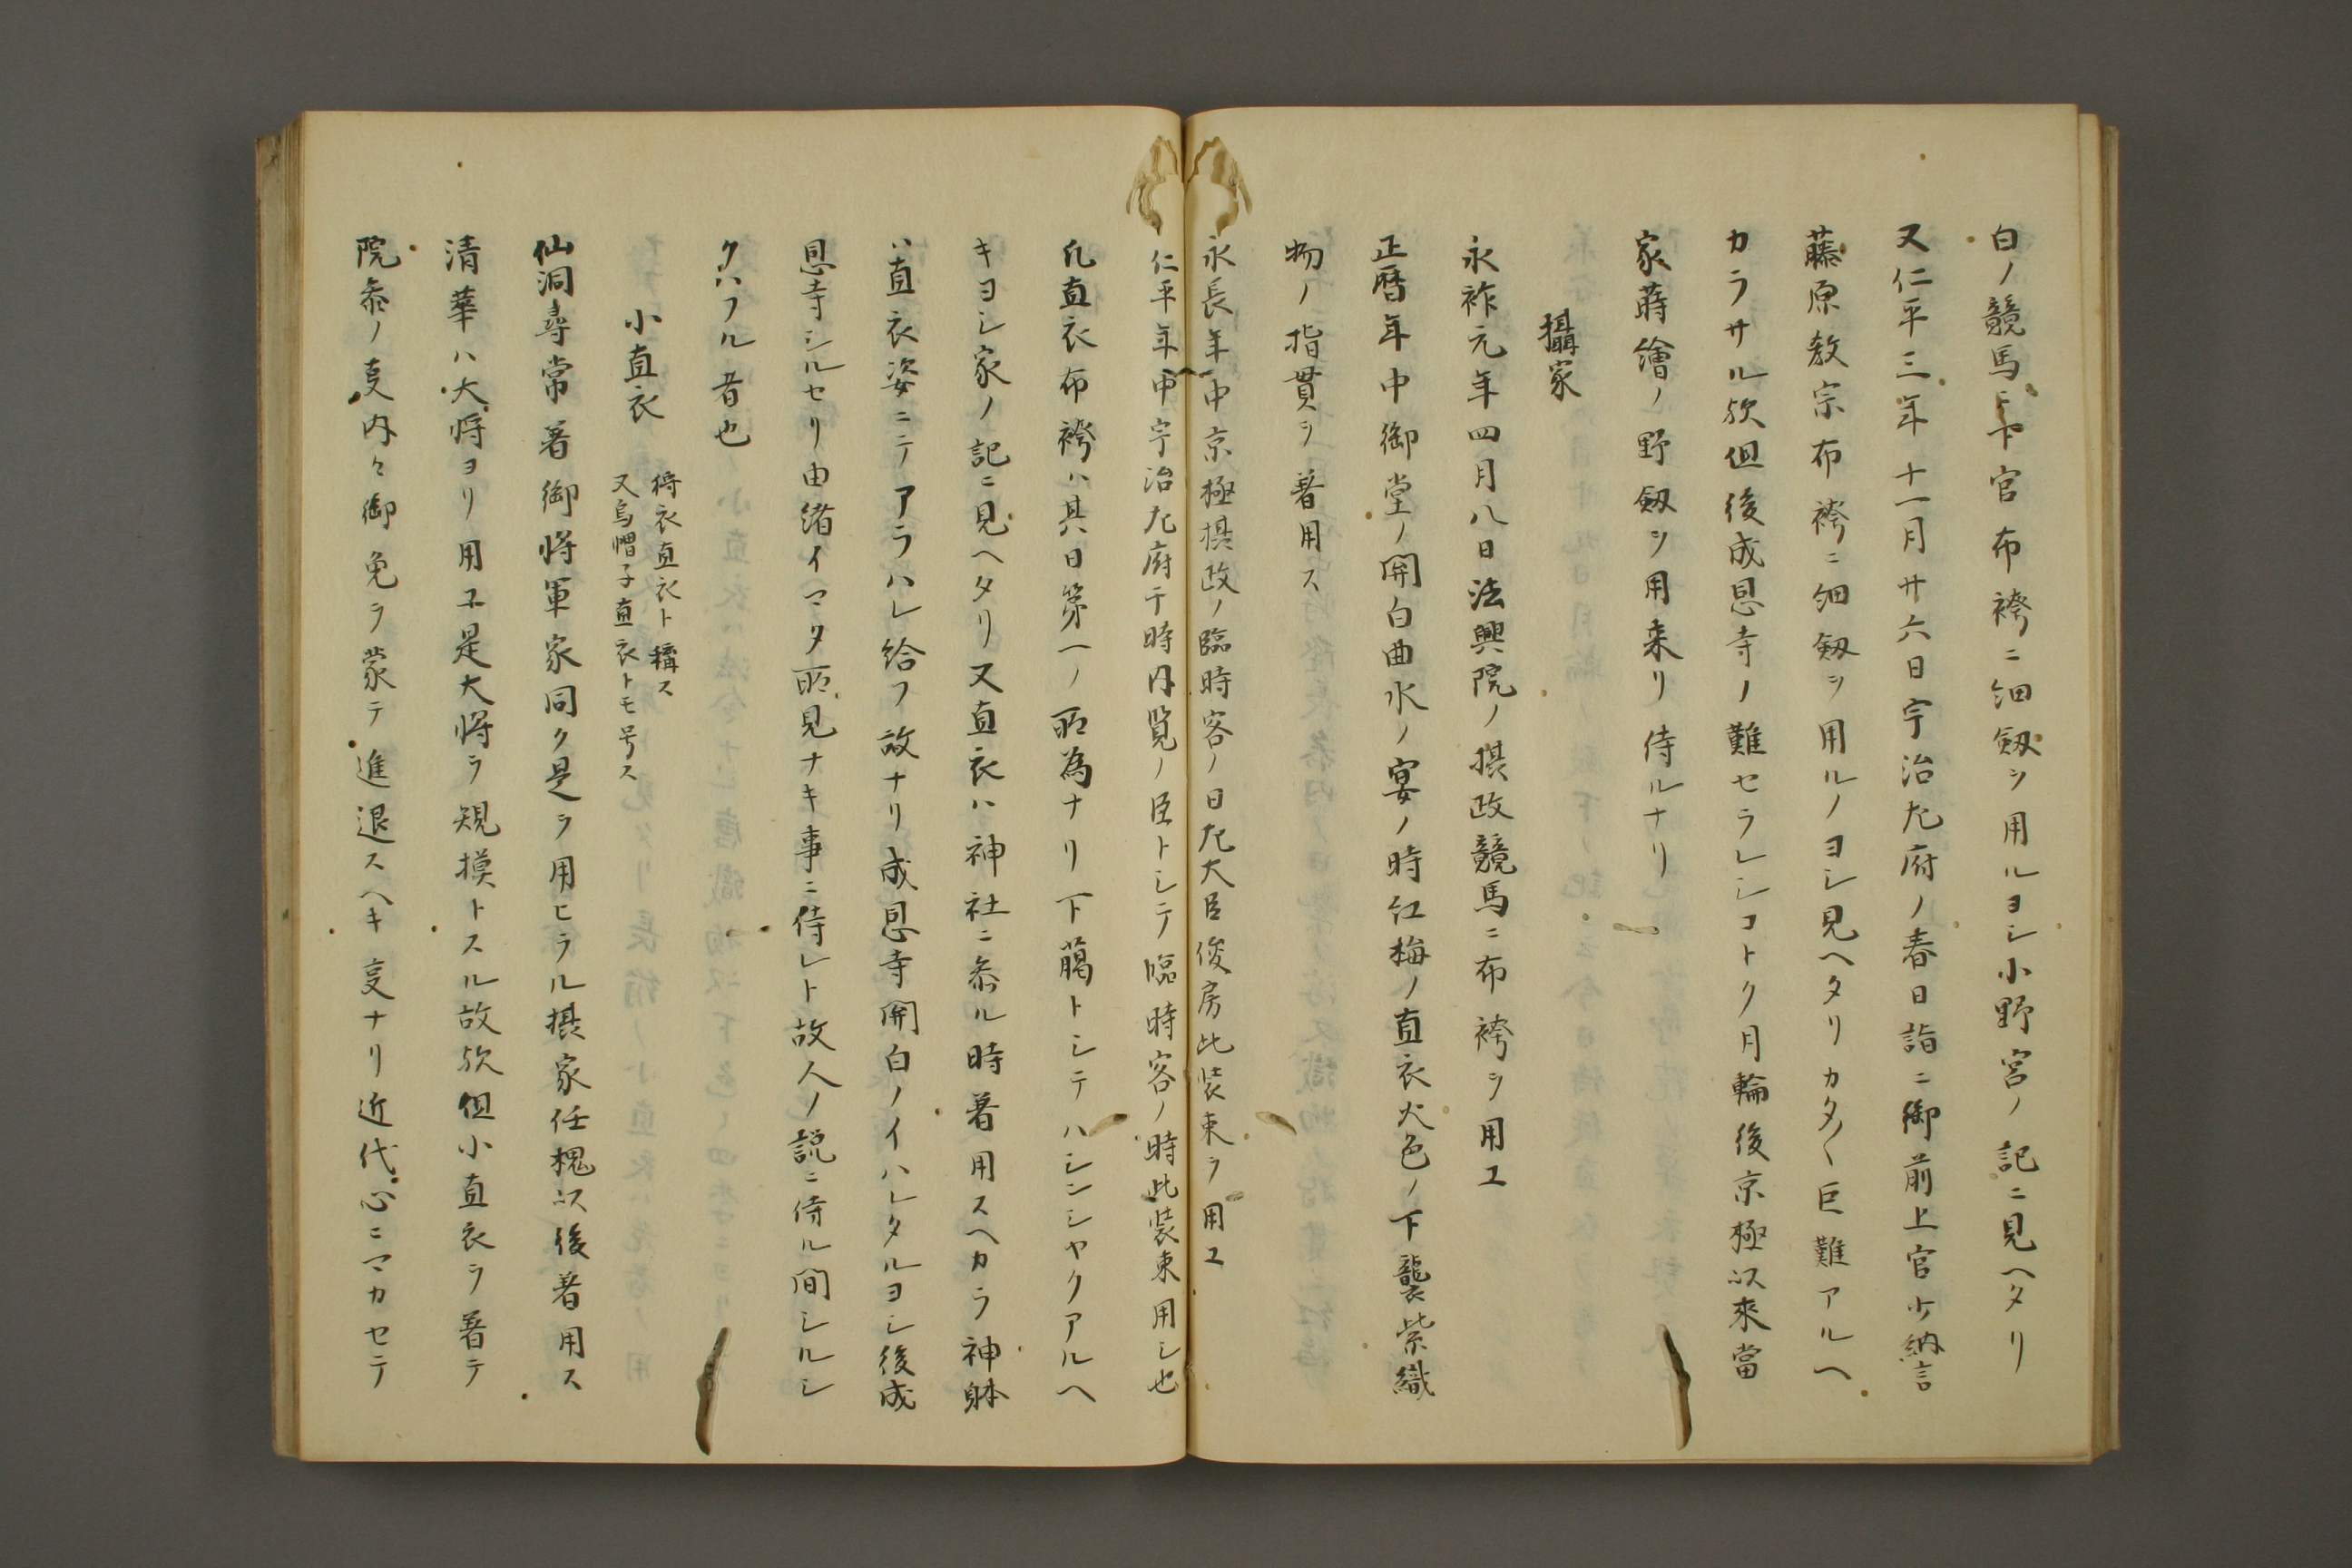 白ノ競馬ニ下官布袴ニ細釼ヲ用ルヨシ小野宮ノ記ニ見ヘタリ
又仁平三年十一月廿六日宇治左府ノ春日詣ニ御前上官少納言
藤原敎宗布袴ニ細釼ヲ用ルノヨシ見ヘタリカタ〱巨難アルヘ
カラサル欤但後成恩寺ノ難セラレシコトク月輪後京極以來當
家蒔繪ノ野釼ヲ用来リ侍ルナリ
攝家
永祚元年四月八日法興院ノ摂政競馬ニ布袴ヲ用ユ
正曆年中御堂ノ関白曲水ノ宴ノ時紅梅ノ直衣火色ノ下襲紫織
物ノ指貫ヲ着用ス
永長年中京極摂政ノ臨時客ノ日左大臣俊房此装束ヲ用ユ
仁平年中宇治左府于時内覧ノ臣トシテ臨時客ノ時此装束用シ也
凡直衣布袴ハ其日第一ノ所為ナリ下﨟トシテハシンシヤクアルヘ
キヨシ家ノ記ニ見ヘタリ又直衣ハ神社ニ参ル時着用スヘカラ神躰
ハ直衣姿ニテアラハレ給フ故ナリ成恩寺関白ノイハレタルヨシ後成
恩寺シルセリ由緒イマタ所見ナキ事ニ侍レト故人ノ説ニ侍ル間シルシ
クハフル者也
小直衣 狩衣直衣ト稱ス
又烏帽子直衣トモ号ス
仙洞尋常着御将軍家同ク是ヲ用ヒラル摂家任槐以後着用ス
清華ハ大将ヨリ用ユ是大将ヲ規摸トスル故欤但小直衣ヲ着テ
院参ノ叓内々御免ヲ蒙テ進退スヘキ叓ナリ近代心ニマカセテ